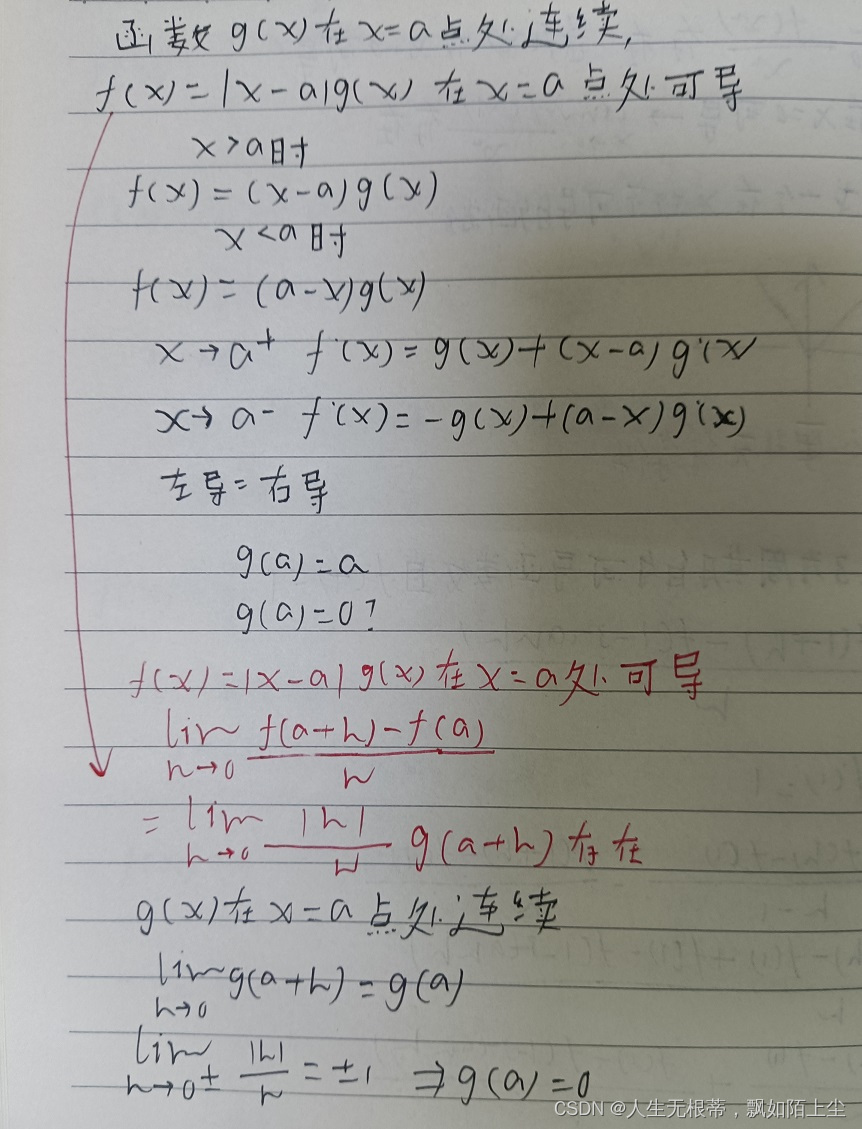 函数 g(x) 在 x=a 点处连续,
f(x)=|x-a|g(x) 在 x=a 点处可导
x>a时
f(x)=(x-a)g(x)
x<a时
f(x)=(a-x)g(x)
x→a+ f'(x)=g(x)+(x-a)g'(x)
x→a- f'(x)=-g(x)+(a-x)g'(x)
左导=右导
g(a)=a
g(a)=0?
f(x)=|x-a|g(x) 在 x=a处可导
lim h→0 f(a+h)-f(a) / h
= lim h→0 |h| / h g(a+h) 存在
g(x)在 x=a 点处连续
lim h→0 g(a+h)=g(a)
lim h→0± |h| / h = ±1 ⇒ g(a)=0
CSDN @人生无根蒂，飘如陌上尘